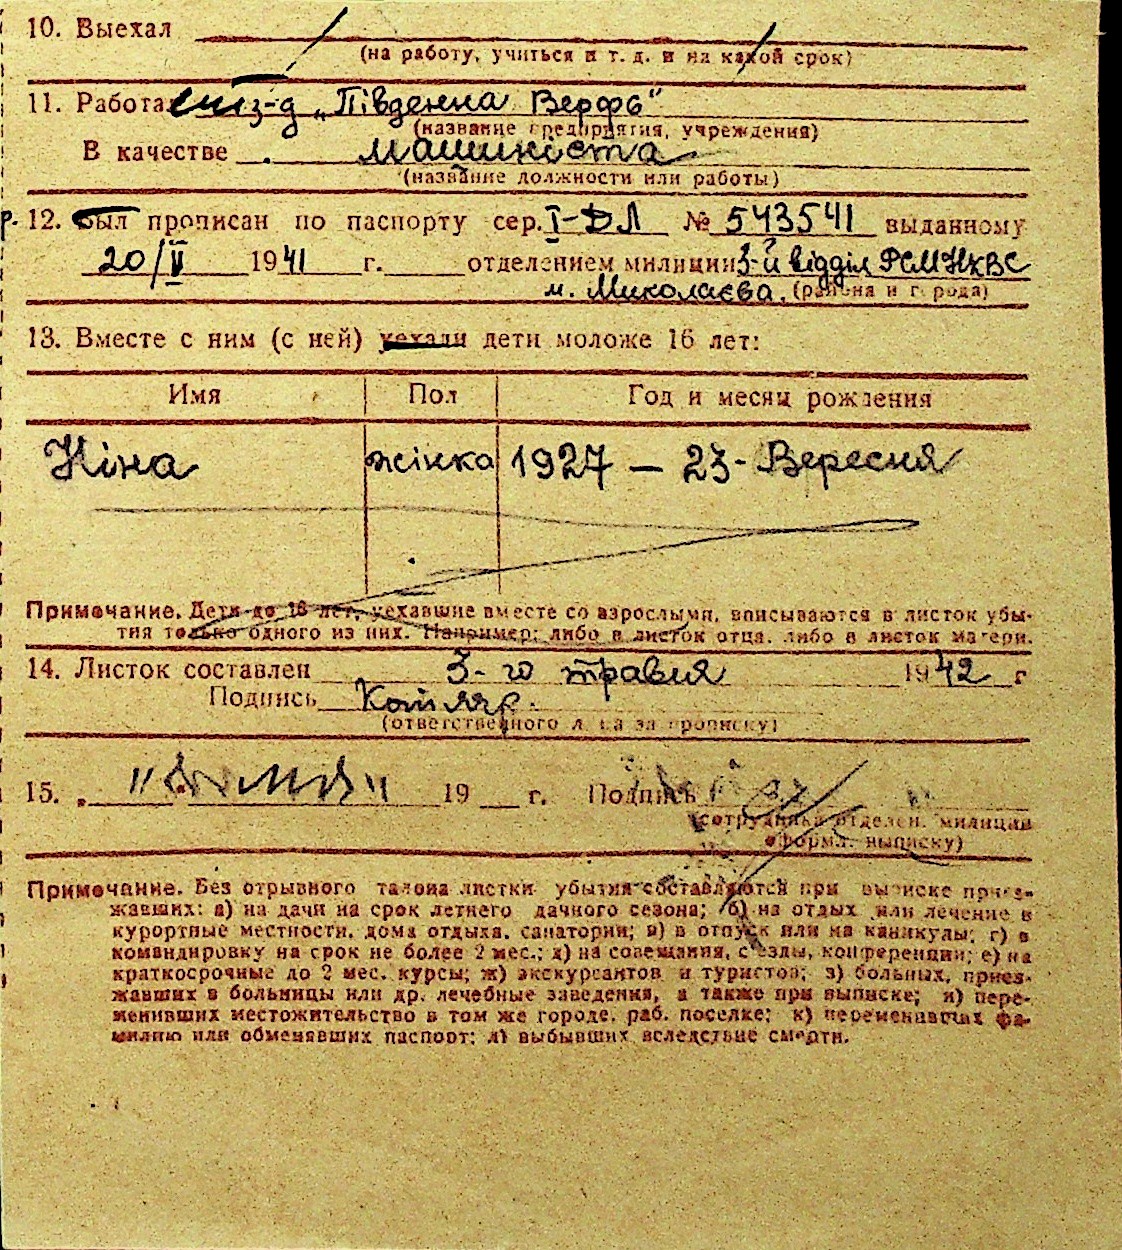 10. Выехал
(на работу, учиться и т. д. и на какой срок)
11. Работа з-д „Південна Верфь"
(название предприятия, учреждения)
В качестве машиніста
(название должности или работы)
12. был прописан по паспорту сер. I-ДЛ № 543541 выданному
20/V 1941 г. отделением милиции 3-й відділ РСМ НКВС
м. Миколаєва. (района и города)
13. Вместе с ним (с ней) уехали дети моложе 16 лет:
Имя Пол Год и месяц рождения
Ніна жінка 1927 — 23- Вересня
Примечание. Дети до 16 лет, уехавшие вместе со взрослыми, вписываются в листок убы-
тия только одного из них. Например: либо в листок отца, либо в листок матери.
14. Листок составлен 3-го травня 1942 г
Подпись
(ответственного лица за прописку)
15. 19 г. Подпись
(сотрудника отделен. милиции
оформл. выписку)
Примечание. Без отрывного талона листки убытия составляются при выписке приез-
жавших: а) на дачи на срок летнего дачного сезона; б) на отдых или лечение в
курортные местности, дома отдыха, санатории; в) в отпуск или на каникулы; г) в
командировку на срок не более 2 мес.; д) на совещания, съезды, конференции; е) на
краткосрочные до 2 мес. курсы; ж) экскурсантов и туристов; з) больных, приез-
жавших в больницы или др. лечебные заведения, а также при выписке; и) пере-
менивших местожительство в том же городе, раб. поселке; к) переменивших фа-
милию или обменявших паспорт; л) выбывших вследствие смерти.